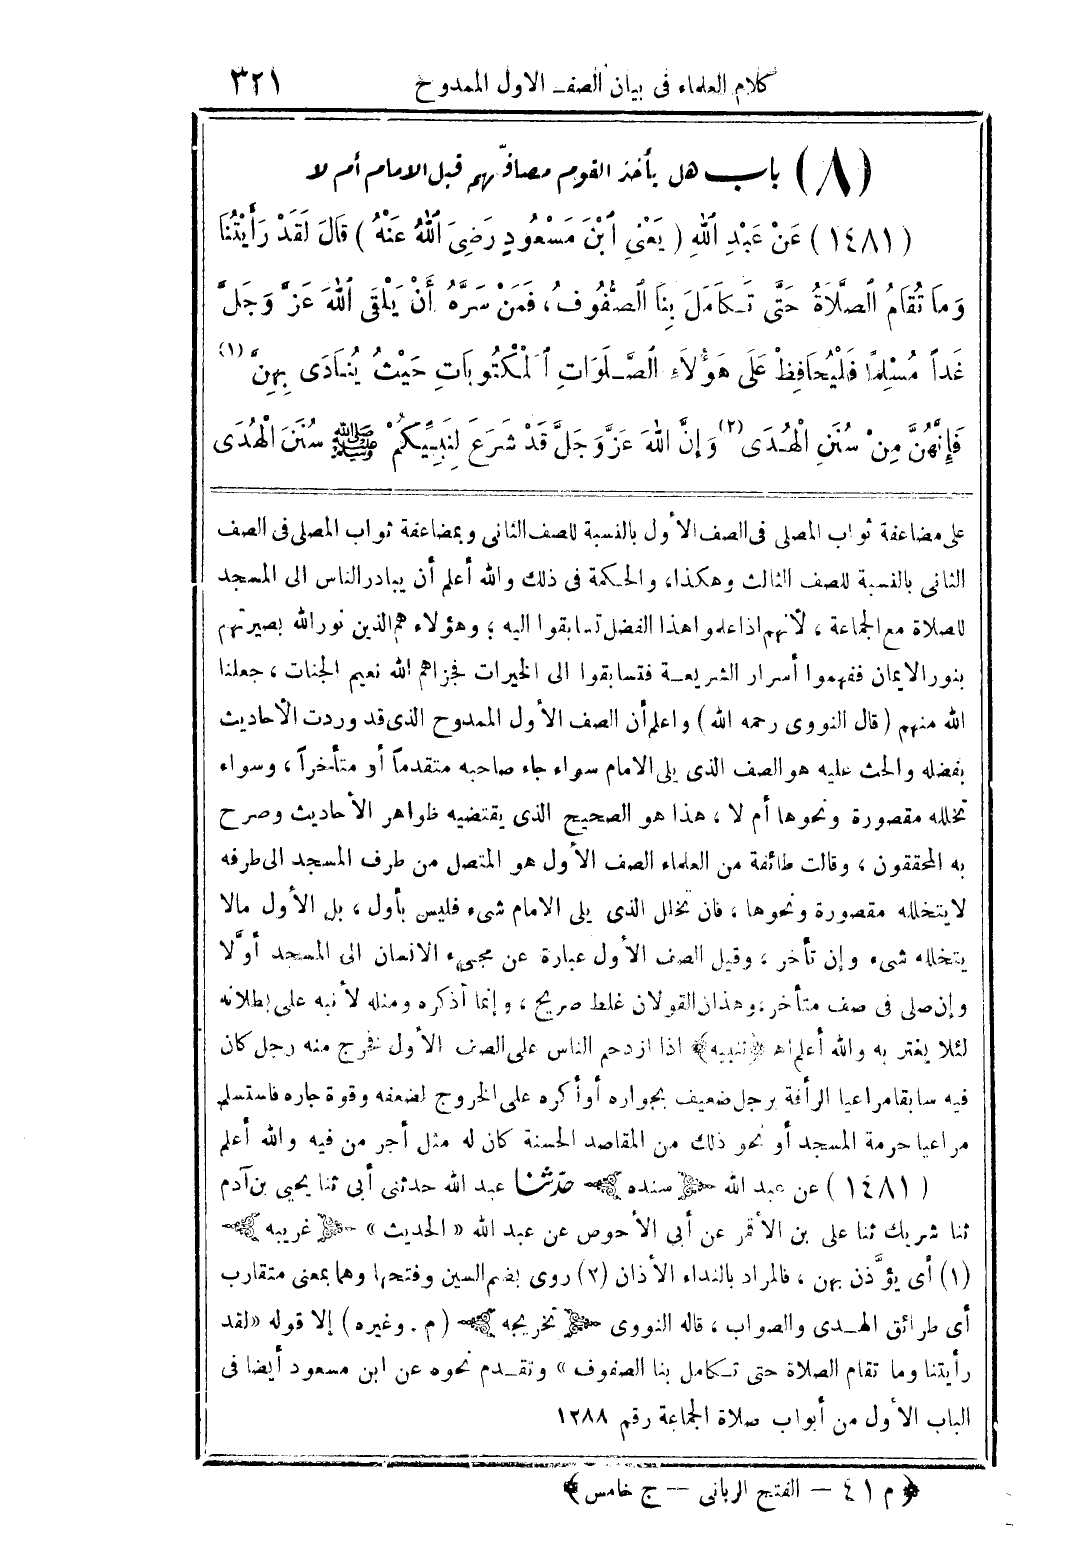 كلام العلماء فى بيان الصف الاول الممدوح ٣٢١
(٨) باب هل يأخذ القوم مصافّهم قبل الامام أم لا
(١٤٨١) عَنْ عَبْدِ اللهِ (يَعْنِى ابْنَ مَسْعُودٍ رَضِىَ اللهُ عَنْهُ) قَالَ لَقَدْ رَأَيْتُنَا
وَمَا تُقَامُ الصَّلَاةُ حَتَّى تَكَامَلَ بِنَا الصُّفُوفُ، فَمَنْ سَرَّهُ أَنْ يَلْقَى اللهَ عَزَّ وَجَلَّ
غَداً مُسْلِمًا فَلْيُحَافِظْ عَلَى هَؤُلَاءِ الصَّلَوَاتِ الْمَكْتُوبَاتِ حَيْثُ يُنَادَى بِهِنَّ (١)
فَإِنَّهُنَّ مِنْ سُنَنِ الْهُدَى (٢) وَإِنَّ اللهَ عَزَّ وَجَلَّ قَدْ شَرَعَ لِنَبِيِّكُمْ ﷺ سُنَنَ الْهُدَى
على مضاعفة ثواب المصلى فى الصف الأول بالنسبة للصف الثانى وبمضاعفة ثواب المصلى فى الصف
الثانى بالنسبة للصف الثالث وهكذا، والحكمة فى ذلك والله أعلم أن يبادر الناس الى المسجد
للصلاة مع الجماعة، لأنهم اذا علموا هذا الفضل تسابقوا اليه؛ وهؤلاء هم الذين نور الله بصيرتهم
بنور الايمان ففهموا أسرار الشريعة فتسابقوا الى الخيرات فجزاهم الله نعيم الجنات، جعلنا
الله منهم (قال النووى رحمه الله) واعلم أن الصف الأول الممدوح الذى قد وردت الأحاديث
بفضله والحث عليه هو الصف الذى يلى الامام سواء جاء صاحبه متقدماً أو متأخراً، وسواء
تخلله مقصورة ونحوها أم لا، هذا هو الصحيح الذى يقتضيه ظواهر الأحاديث وصرح
به المحققون، وقالت طائفة من العلماء الصف الأول هو المتصل من طرف المسجد الى طرفه
لا يتخلله مقصورة ونحوها، فان تخلل الذى يلى الامام شىء فليس بأول، بل الأول مالا
يتخلله شىء وإن تأخر، وقيل الصف الأول عبارة عن مجىء الانسان الى المسجد أوَّلا
وإن صلى فى صف متأخر، وهذان القولان غلط صريح، وإنما أذكره ومثله لأنبه على بطلانه
لئلا يغتر به والله أعلم اهـ ﴿تنبيه﴾ اذا ازدحم الناس على الصف الأول فخرج منه رجل كان
فيه سابقا مراعيا الرأفة برجل ضعيف بجواره أو أكره على الخروج لضعفه وقوة جاره فاستسلم
مراعيا حرمة المسجد أو نحو ذلك من المقاصد الحسنة كان له مثل أجر من فيه والله أعلم
(١٤٨١) عن عبد الله ﴿سنده﴾ حدّثنا عبد الله حدثنى أبى ثنا يحيى بن آدم
ثنا شريك ثنا على بن الأقمر عن أبى الأحوص عن عبد الله «الحديث» ﴿غريبه﴾
(١) أى يؤذَّن بهن، فالمراد بالنداء الأذان (٢) روى بضم السين وفتحها وهما بمعنى متقارب
أى طرائق الهدى والصواب، قاله النووى ﴿تخريجه﴾ (م. وغيره) إلا قوله «لقد
رأيتنا وما تقام الصلاة حتى تكامل بنا الصفوف» وتقدم نحوه عن ابن مسعود أيضا فى
الباب الأول من أبواب صلاة الجماعة رقم ١٢٨٨
﴿م ٤١ — الفتح الربانى — ج خامس﴾